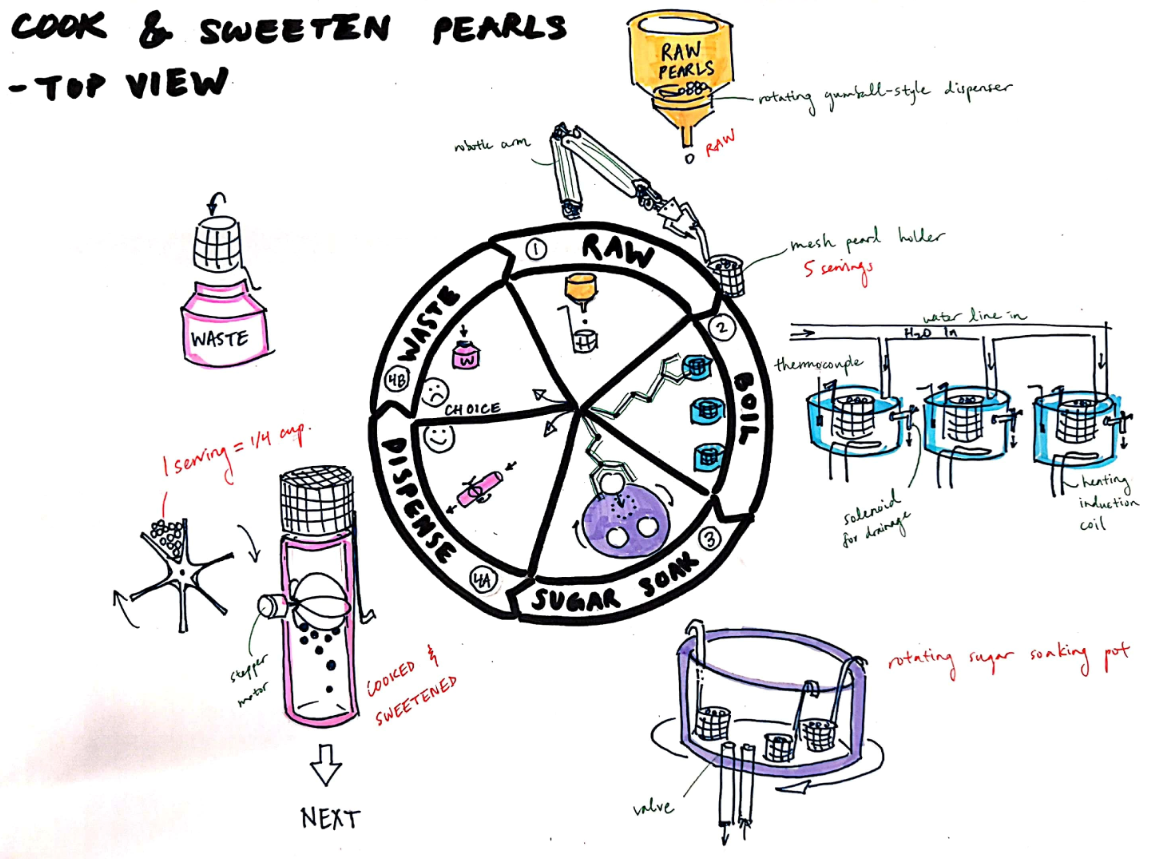 COOK & SWEETEN PEARLS
- TOP VIEW
RAW
PEARLS
rotating gumball-style dispenser
RAW
robotic arm
mesh pearl holder
5 servings
1 RAW
2 BOIL
3 SUGAR SOAK
4A DISPENSE
4B WASTE
CHOICE
W
WASTE
water line in
H2O In
thermocouple
solenoid
for drainage
heating
induction
coil
1 serving = 1/4 cup.
stepper
motor
COOKED &
SWEETENED
NEXT
rotating sugar soaking pot
valve